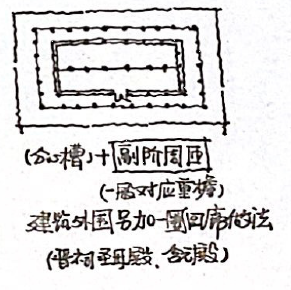 (分心槽)+副阶周匝
(一层对应重檐)
建筑外围另加一圈回廊做法
(晋祠圣母殿、含元殿)